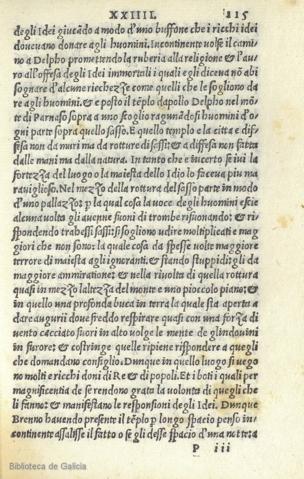 XXIIII. 115
degli Idei giucādo a modo d'uno buffone che i ricchi idei
doueuano donare agli huomini. Incontinente volse il cami
no a Delpho promettendo la ruberia alla religione & l'au
ro all'offesa degli Idei immortali i quali egli diceua nō abi
sognare d'alcune riechezze come quelli che le sogliono da
re agli huomini. & e posto il tēplo dapollo Delpho nel mō
te di Parnaso sopra a uno scoglio ragunādosi huomini d'o
gni parte sopra quello sasso. E quello templo e la citta e dif=
fesa non da muri ma da rotture di sassi: & a diffesa non fatta
dalle mani ma dalla natura. In tanto che e incerto se iui la
fortezza del luogo o la maiesta dello Idio lo faceua piu ma
rauiglioso. Nel mezzo della rottura del sasso parte in modo
d'uno pallazzo: p la qual cosa la uoce degli huomini e se
alcuna volta gli auenne suoni di trombe risionando: & ri=
spondendo trabessi sassi: si sogliono udire moltiplicati e mag
giori che non sono: la quale cosa da spesse volte maggiore
terrore di maiesta agli ignoranti, e stando stuppidi: gli da
maggiore ammiratione: & nella riuolta di quella rottura
quasi in mezzo laltezza del monte e uno piocciolo piano: &
in quello una profonda buca in terra la quale sta aperta a
dare augurii doue freddo respirare quasi con una forza di
vento cacciato fuori in alto volge le mente de glindouini
in furore: & costringe quelle ripiene rispondere a quegli
che domandano consiglio. Dunque in quello luogo si uego
no molti e ricchi doni di Re & di popoli. Et i boti i quali per
magnificentia de se rendono grata la volonta di quegli che
li fanno: & manifestano le responsioni degli Idei. Dunque
Brenno hauendo presente il tēplo p longo spacio penso in=
continente assalisse il fatto o se gli desse spacio d'una notte: a
P iii
Biblioteca de Galicia